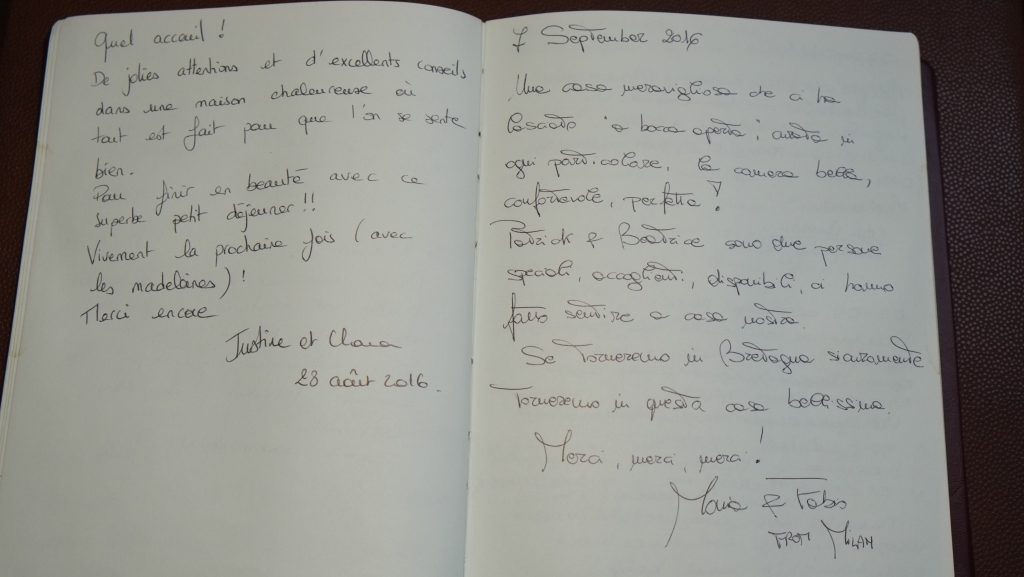 Quel accueil !
De jolies attentions et d'excellents conseils
dans une maison chaleureuse où
tout est fait pour que l'on se sente
bien.
Pour finir en beauté avec ce
superbe petit déjeuner !!
Vivement la prochaine fois (avec
les madelaines) !
Merci encore
Justine et Clara
28 août 2016.
7 September 2016
Una casa meravigliosa che ci ha
lasciato "a bocca aperta", curata in
ogni particolare, la camera bella,
confortevole, perfetta !
Patrick & Beatrice sono due persone
speciali, accoglienti, disponibili, ci hanno
fatto sentire a casa nostra.
Se torneremo in Bretagna sicuramente
torneremo in questa casa bellissima.
Merci, merci, merci !
&
from Milan